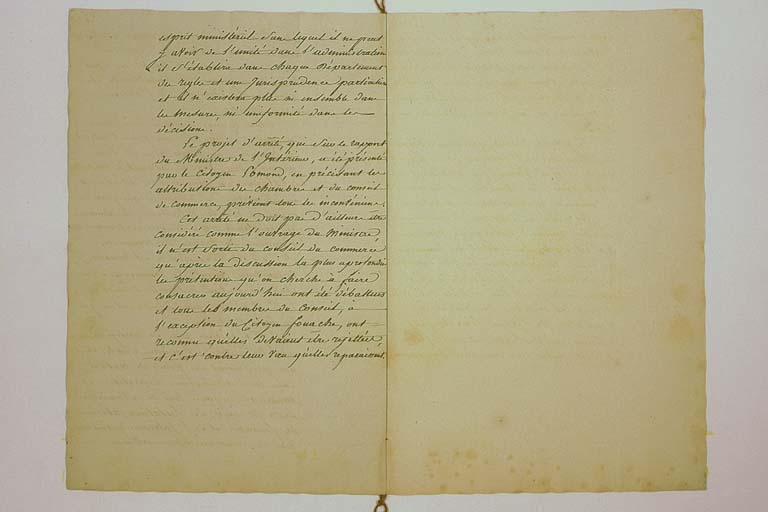 esprit ministériel sans lequel il ne peut
y avoir de l'unité dans l'administration
il s'établira dans chaque Département
des regles et une Jurisprudence particulière
et il n'existera plus ni ensemble dans
les mesures, ni uniformité dans les
décisions.
Le projet d'arrêté, que sur le rapport
du Ministre de l'Intérieur, a été présenté
par le Citoyen Esmond, en précisant les
attributions des chambres et du conseil
de commerce, prévient tous les inconvéniens.
Cet arrêté ne doit pas d'ailleurs être
considéré comme l'ouvrage du Ministre
il n'est sorti du conseil du commerce
qu'après la discussion la plus aprofondie
les prétentions qu'on cherche à faire
consacrer aujourd'hui ont été débattues
et tous les membres du Conseil, à
l'exception du Citoyen fouache, ont
reconnu qu'elles devaient être rejettées
et c'est contre leur vœu qu'elles reparaissent.